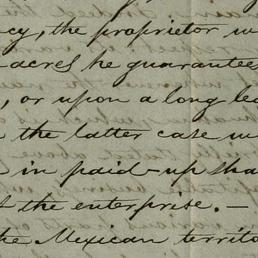 cy, the proprietor w
acres he guarantees
, or upon a long le
the latter case w
in paid-up sha
t the enterprise. —
the Mexican territo